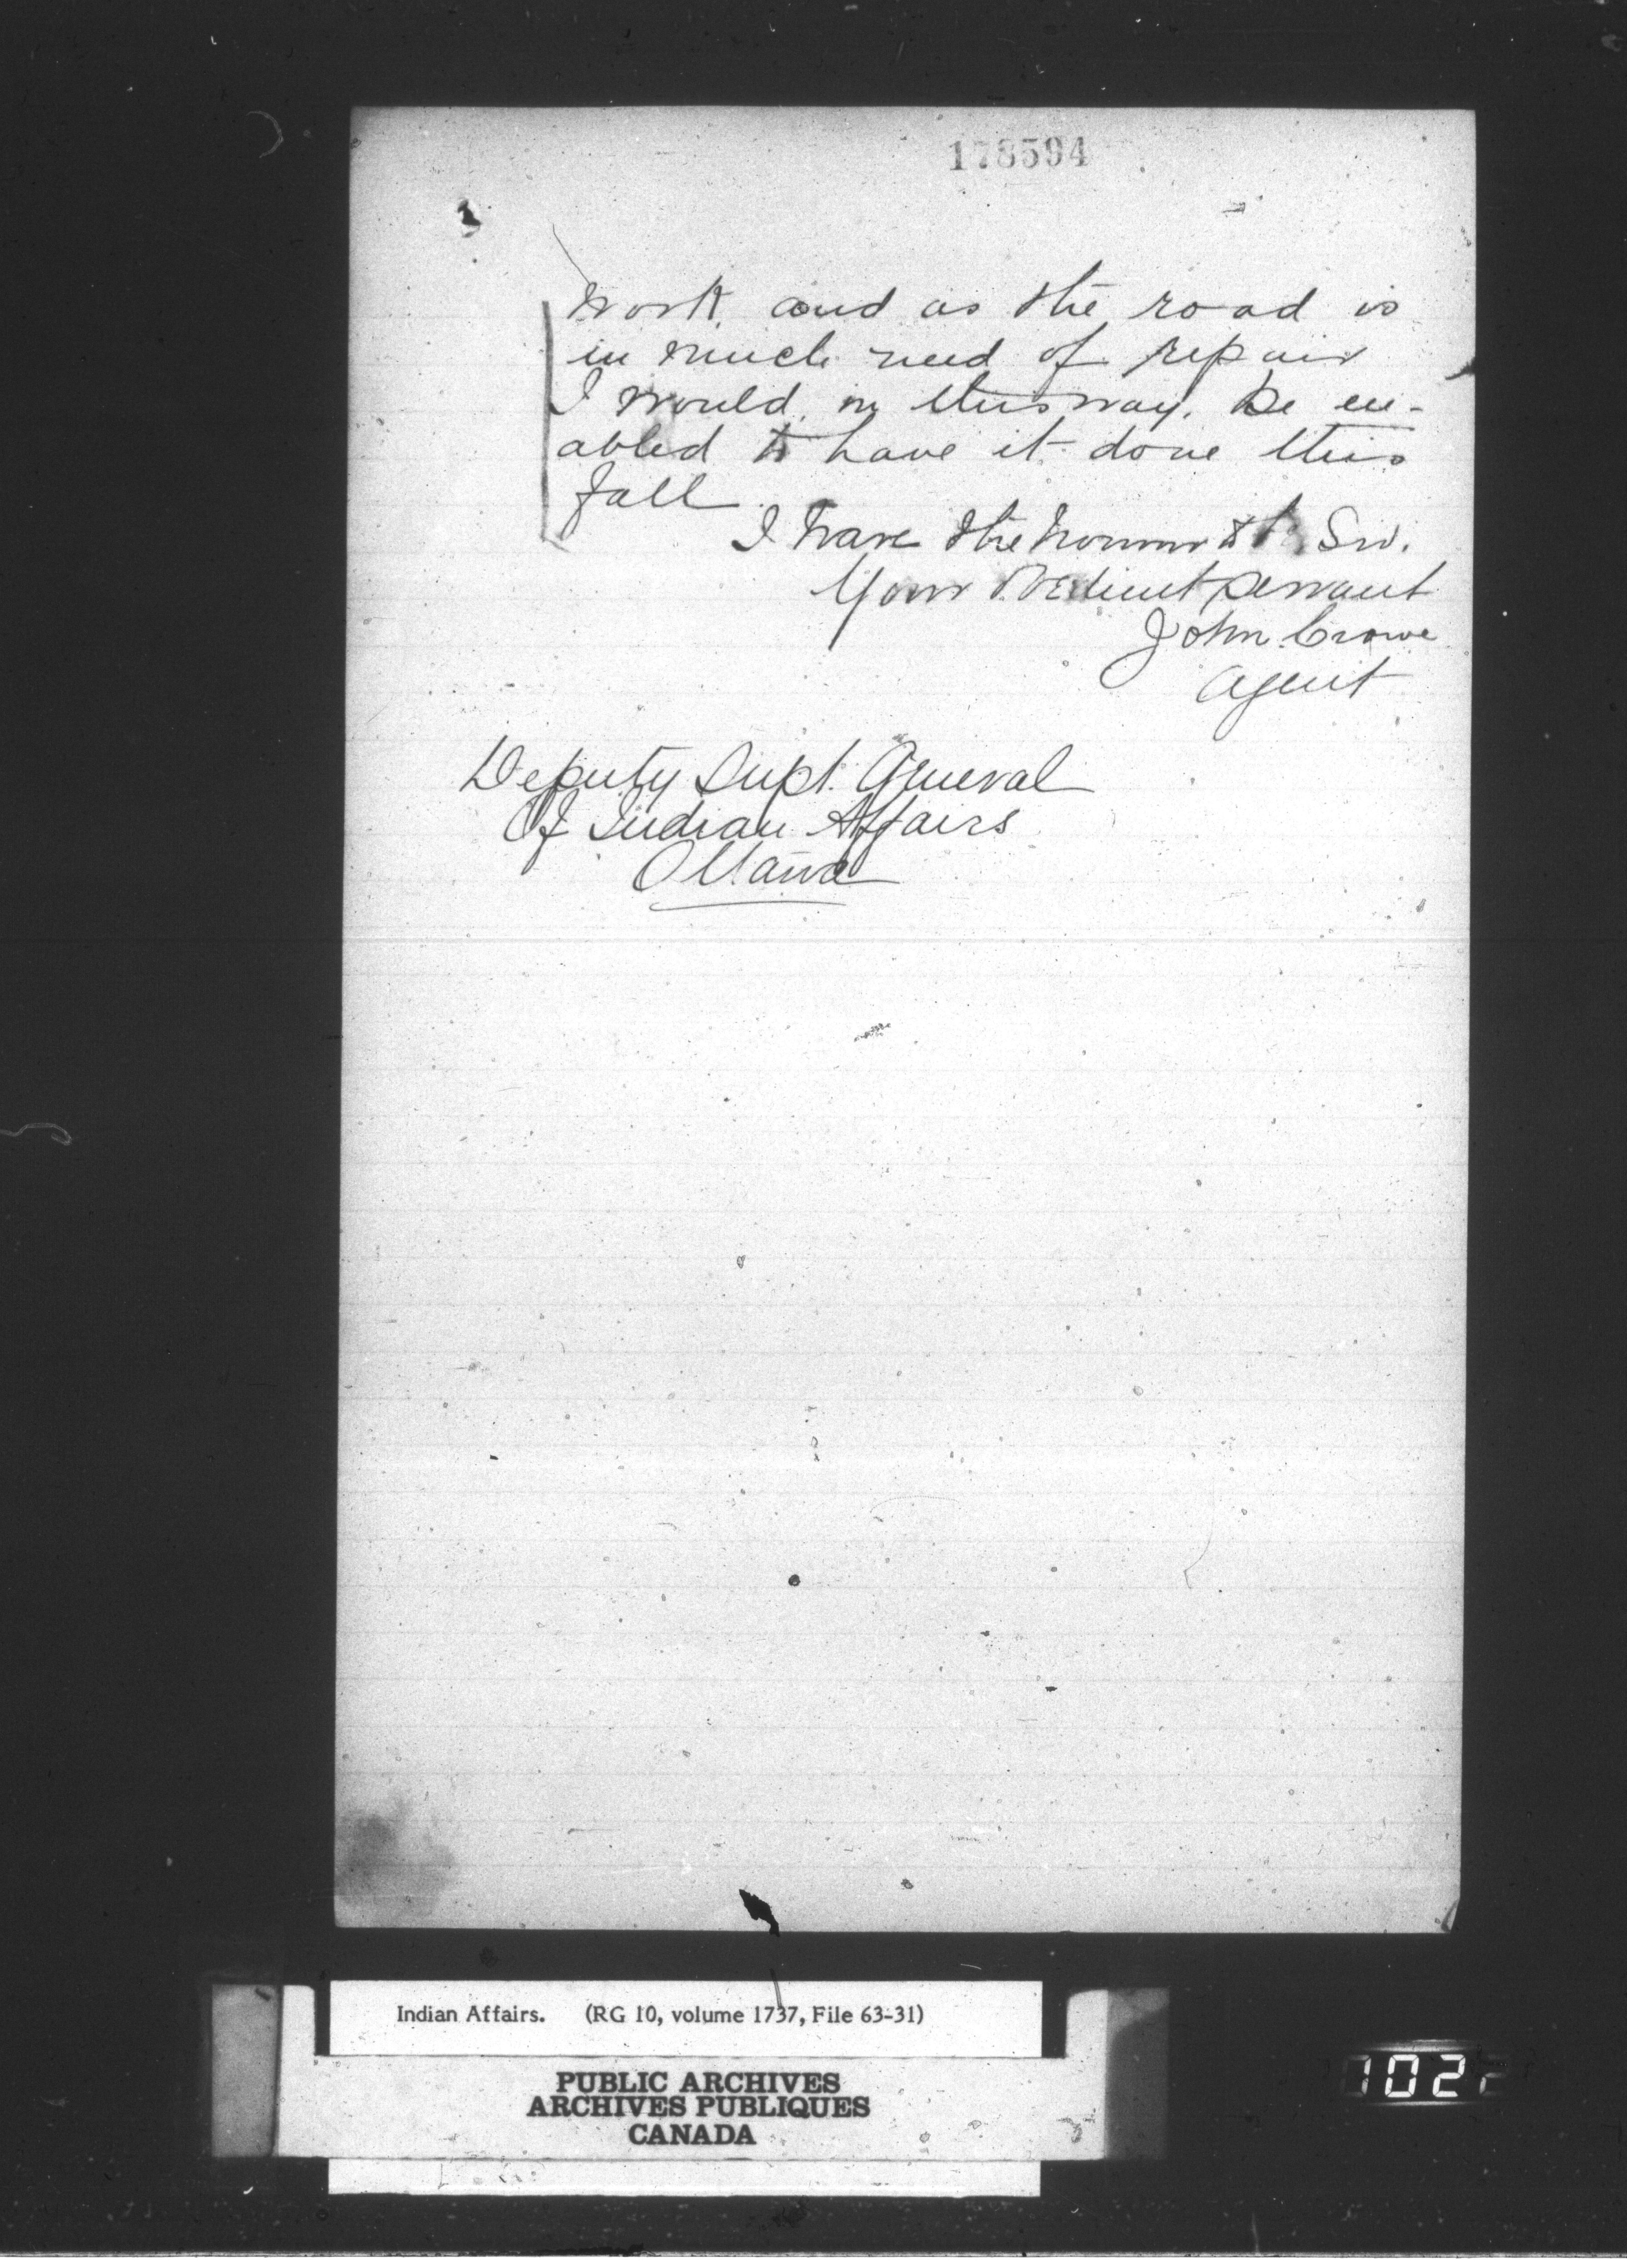 178594
work, and as the road is
in much need of repair
I would, in this way, be en-
abled to have it done this
fall.
I have the honour to be, Sir,
Your Obedient Servant
John Crowe
Agent
Deputy Supt. General
Of Indian Affairs
Ottawa
Indian Affairs. (RG 10, volume 1737, File 63-31)
PUBLIC ARCHIVES
ARCHIVES PUBLIQUES
CANADA